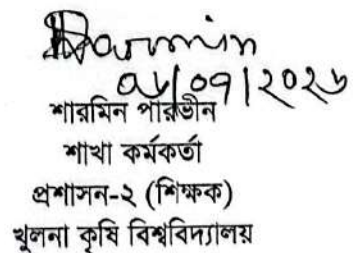 Sharmin
০৮/০৭/২০২৬
শারমিন পারভীন
শাখা কর্মকর্তা
প্রশাসন-২ (শিক্ষক)
খুলনা কৃষি বিশ্ববিদ্যালয়